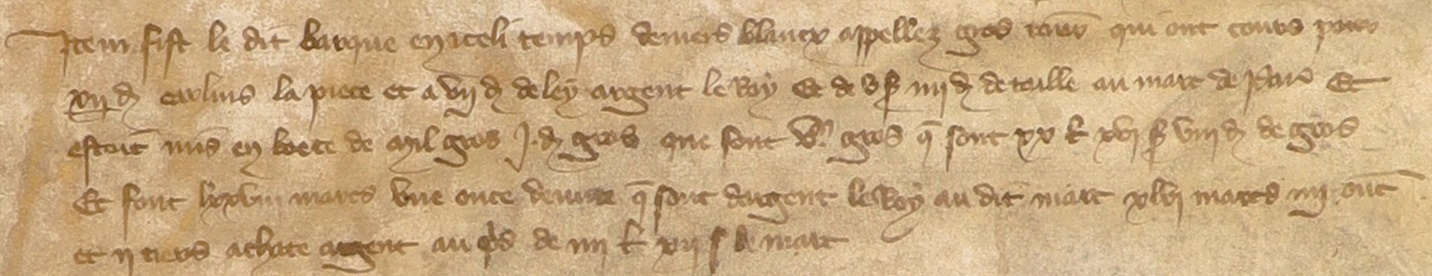 Item fist le dit barque en iceli temps deniers blancx appellez gros tour qui ont cours pour
xij d esterlins la piece et a vij d de ley argent le Roy Et de v s iiij d de taille au marc de Paris Et
estoit mis en boete de mil gros j d gros que sont gros q sont xx l xvj s viij d de gros
Et sont lxxviij marcs une once q sont dargent le Roy au dit marc xlvj marcs iiij onc
et ij tiers achate argent au pris de iiij l xij s le marc